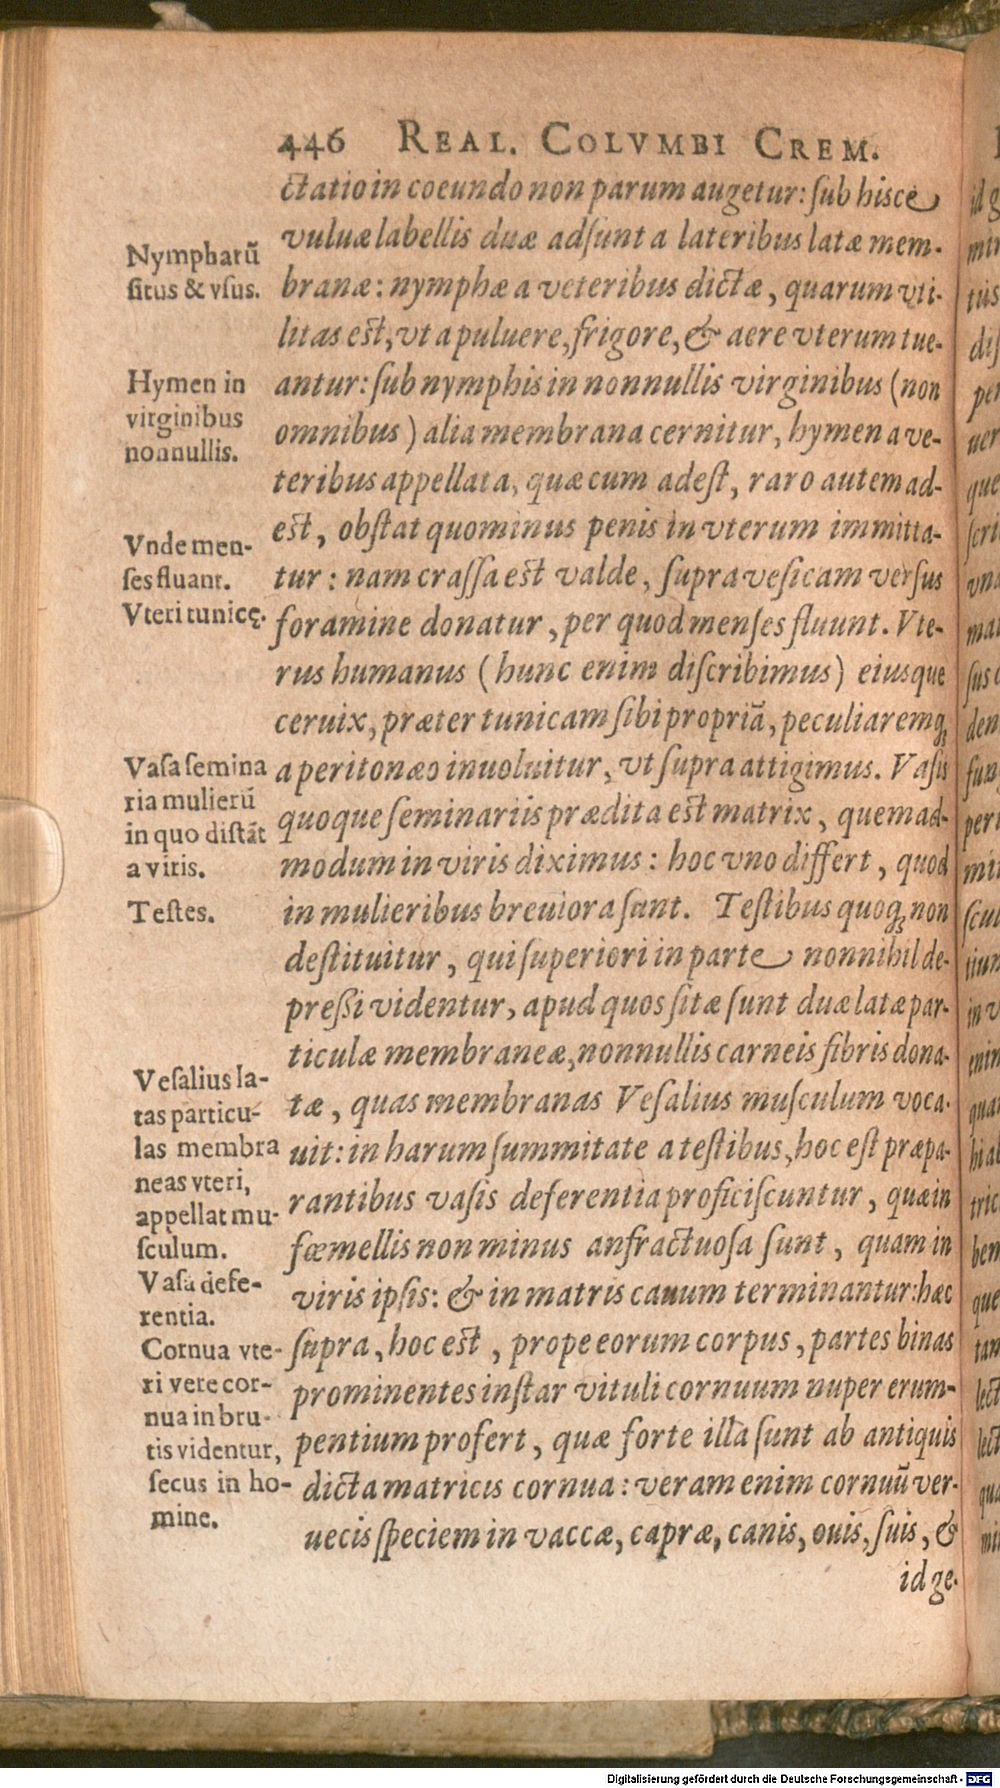 446 REAL. COLVMBI CREM.
ctatio in coeundo non parum augetur: sub hisce
vuluæ labellis duæ adsunt a lateribus latæ mem-
branæ: nymphæ a veteribus dictæ, quarum vti-
litas est, vt a puluere, frigore, & aere vterum tue-
antur: sub nymphis in nonnullis virginibus (non
omnibus) alia membrana cernitur, hymen a ve-
teribus appellata, quæ cum adest, raro autem ad-
est, obstat quominus penis in vterum immitta-
tur: nam crassa est valde, supra vesicam versus
foramine donatur, per quod menses fluunt. Vte-
rus humanus (hunc enim discribimus) eiusque
ceruix, præter tunicam sibi propriã, peculiaremq;
a peritonæo inuoluitur, vt supra attigimus. Vasis
quoque seminariis prædita est matrix, quemad-
modum in viris diximus: hoc vno differt, quod
in mulieribus breuiora sunt. Testibus quoq; non
destituitur, qui superiori in parte nonnihil de-
pressi videntur, apud quos sitæ sunt duæ latæ par-
ticulæ membraneæ, nonnullis carneis fibris dona-
tæ, quas membranas Vesalius musculum voca-
uit: in harum summitate a testibus, hoc est præpa-
rantibus vasis deferentia proficiscuntur, quæ in
fœmellis non minus anfractuosa sunt, quam in
viris ipsis: & in matris cauum terminantur: hæc
supra, hoc est, prope eorum corpus, partes binas
prominentes instar vituli cornuum nuper erum-
pentium profert, quæ forte illa sunt ab antiquis
dicta matricis cornua: veram enim cornuũ ver-
uecis speciem in vaccæ, capræ, canis, ouis, suis, &
id ge-
Nympharũ
situs & vsus.
Hymen in
virginibus
nonnullis.
Vnde men-
ses fluant.
Vteri tunicę.
Vasa semina
ria mulierũ
in quo distãt
a viris.
Testes.
Vesalius la-
tas particu-
las membra
neas vteri,
appellat mu-
sculum.
Vasa defe-
rentia.
Cornua vte-
ri vere cor-
nua in bru-
tis videntur,
secus in ho-
mine.
Digitalisierung gefördert durch die Deutsche Forschungsgemeinschaft - DFG